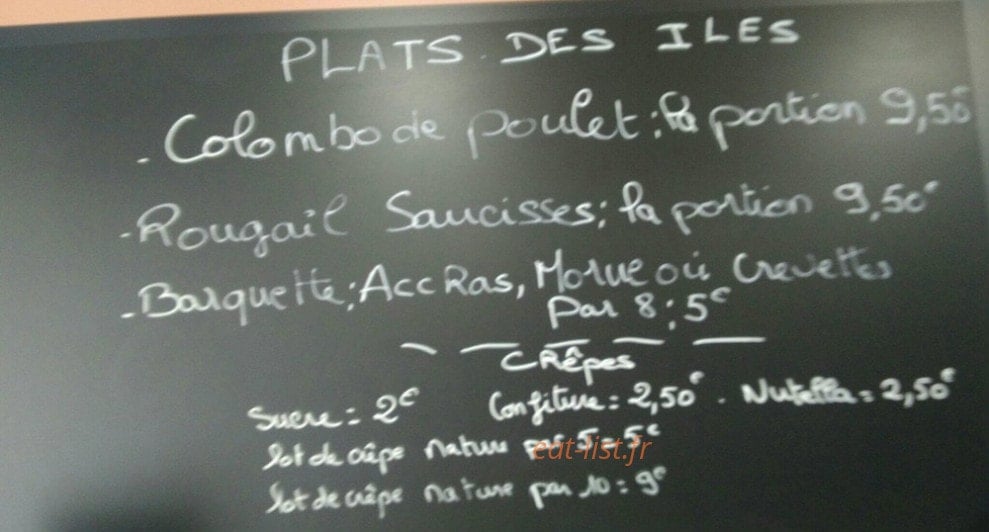 PLATS DES ILES
- Colombo de poulet : la portion 9,50€
- Rougail Saucisses ; la portion 9,50€
- Barquette : Accras, Morue ou Crevettes
Par 8 : 5€
CRÊPES
Sucre = 2€ Confiture = 2,50€ . Nutella = 2,50€
lot de crêpe nature par 5 = 5€
eat-list.fr
lot de crêpe nature par 10 = 9€